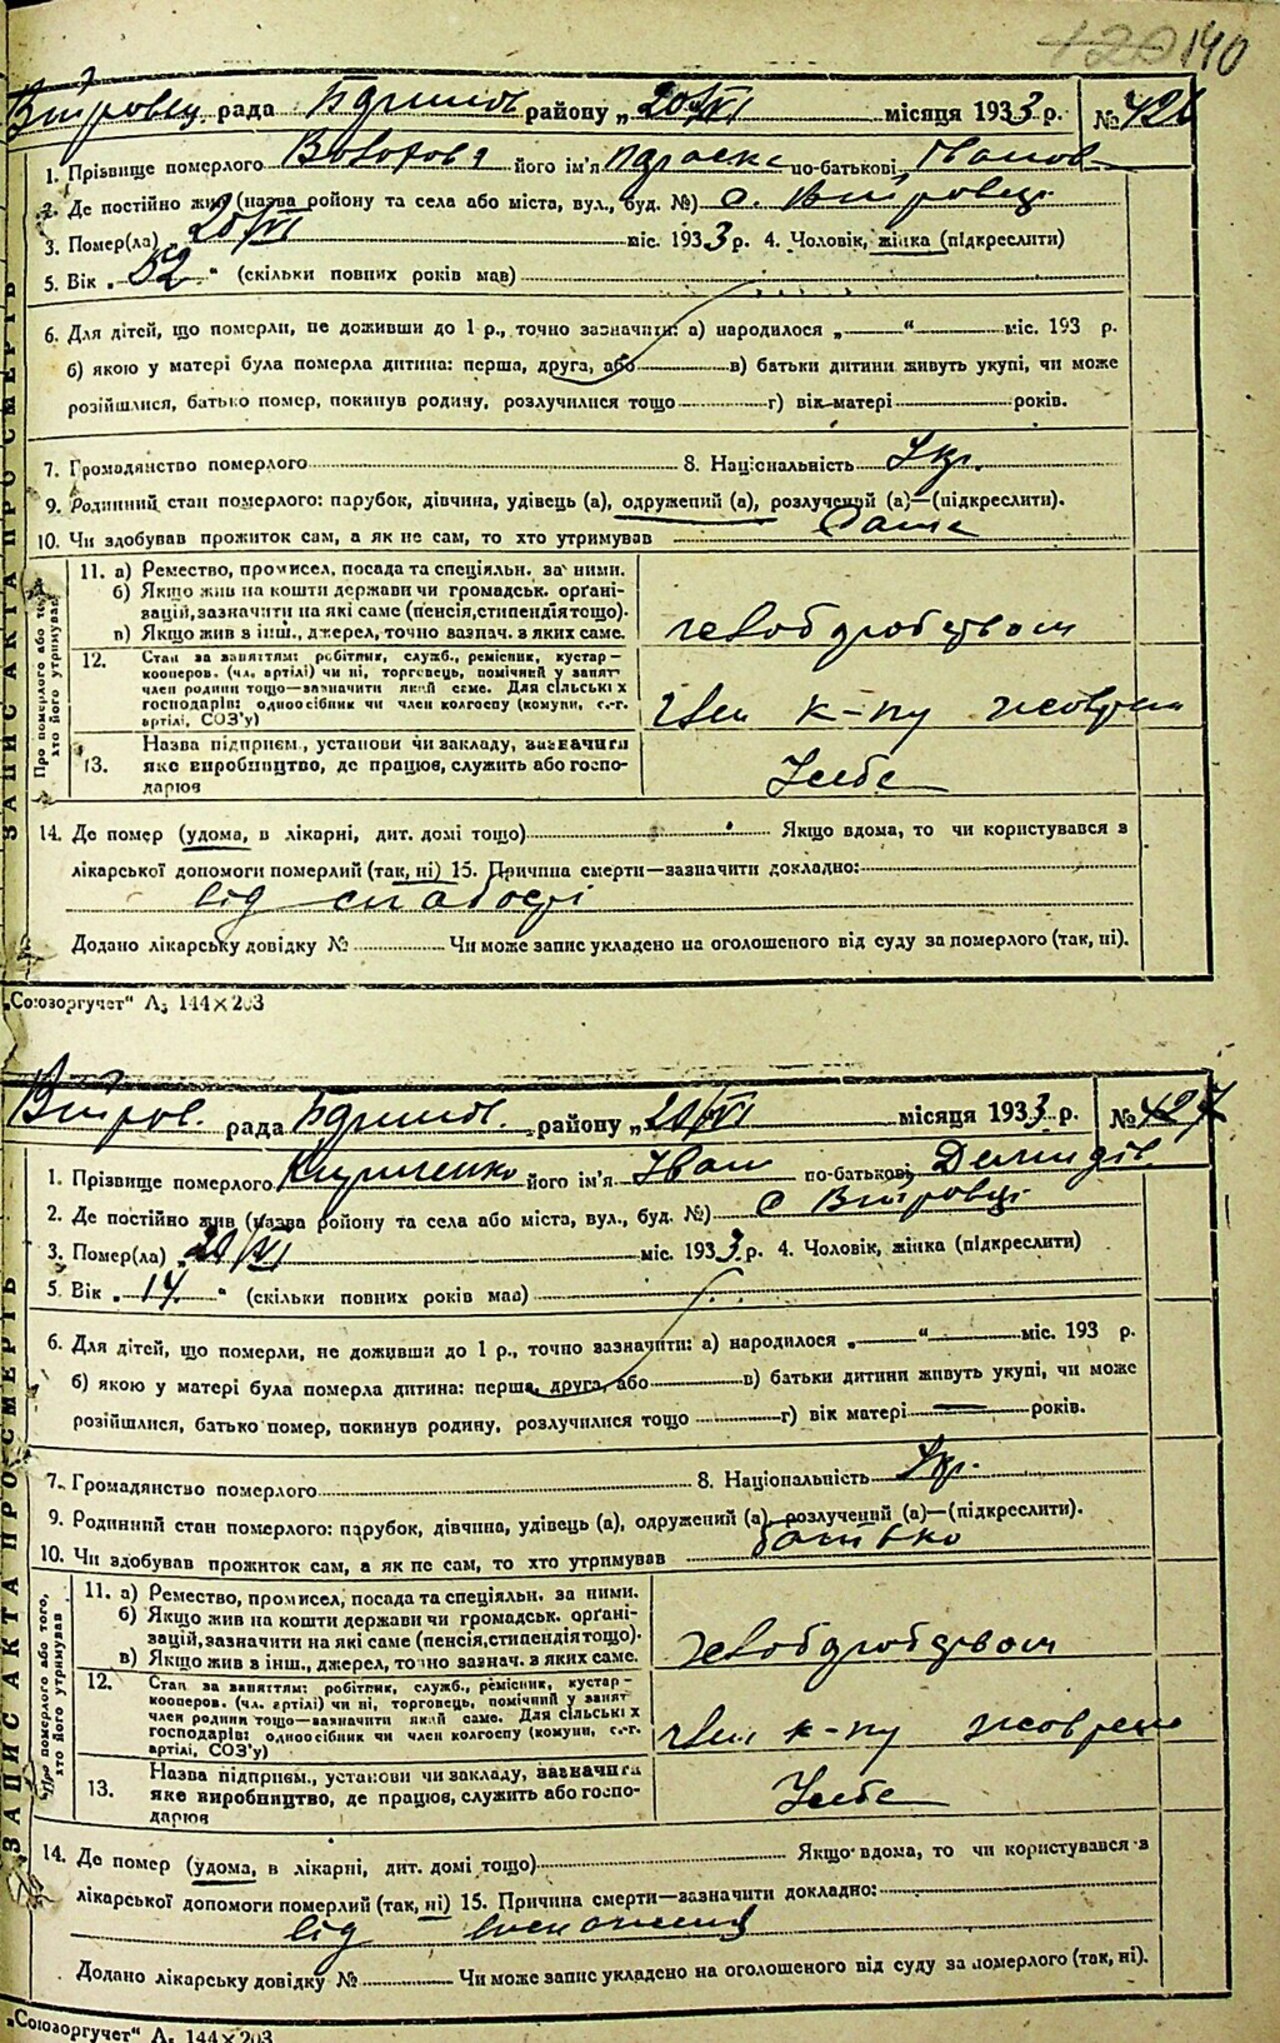 140
рада района „20/VI місяця 1933 р. №
1. Прізвище померлого його ім'я по-батькові Іванов
2. Де постійно жив (назва ройону та села або міста, вул., буд. №) с.
3. Помер(ла) 20/VI міс. 1933 р. 4. Чоловік, жінка (підкреслити)
5. Вік „52“ (скільки повних років мав)
6. Для дітей, що померли, не доживши до 1 р., точно зазначити: а) народилося „ “ міс. 193 р.
б) якою у матері була померла дитина: перша, друга, або в) батьки дитини живуть укупі, чи може
розійшлися, батько помер, покинув родину, розлучилися тощо г) вік матері років.
7. Громадянство померлого 8. Національність Укр.
9. Родинний стан померлого: парубок, дівчина, удівець (а), одружений (а), розлучений (а)—(підкреслити).
10. Чи здобував прожиток сам, а як не сам, то хто утримував Сама
ЗАПИС АКТА ПРО СМЕРТЬ
Про померлого або того, хто його утримував
11. а) Ремество, промисел, посада та спеціяльн. за ними.
б) Якщо жив на кошти держави чи громадськ. орґані-
зацій, зазначити на які саме (пенсія, стипендія тощо).
в) Якщо жив з інш., джерел, точно зазнач. з яких саме.
хлібаробством
12. Стан за заняттям: робітник, служб., ремісник, кустар-
кооперов. (чл. артілі) чи ні, торговець, помічний у занят
член родини тощо—зазначити який саме. Для сільських
господарів: одноосібник чи член колгоспу (комуни, с.-г.
артілі, СОЗ'у)
член к-пу
13. Назва підприєм., установи чи закладу, зазначити
яке виробництво, де працюв, служить або госпо-
дарюв
У себе
14. Де помер (удома, в лікарні, дит. домі тощо) Якщо вдома, то чи користувався з
лікарської допомоги померлий (так, ні) 15. Причина смерти—зазначити докладно:
від слабості
Додано лікарську довідку № Чи може запис укладено на оголошеного від суду за померлого (так, ні).
„Союзоргучет“ А₅ 144×203
рада району „20/VI місяця 1933 р. № 427
1. Прізвище померлого Кириченко його ім'я Іван по-батькові Демидів
2. Де постійно жив (назва ройону та села або міста, вул., буд. №) с
3. Помер(ла) „20/VI міс. 1933 р. 4. Чоловік, жінка (підкреслити)
5. Вік „14“ (скільки повних років мав)
6. Для дітей, що померли, не доживши до 1 р., точно зазначити: а) народилося „ “ міс. 193 р.
б) якою у матері була померла дитина: перша, друга, або в) батьки дитини живуть укупі, чи може
розійшлися, батько помер, покинув родину, розлучилися тощо г) вік матері років.
7. Громадянство померлого 8. Національність Укр.
9. Родинний стан померлого: парубок, дівчина, удівець (а), одружений (а), розлучений (а)—(підкреслити).
10. Чи здобував прожиток сам, а як не сам, то хто утримував батько
ЗАПИС АКТА ПРО СМЕРТЬ
Про померлого або того, хто його утримував
11. а) Ремество, промисел, посада та спеціяльн. за ними.
б) Якщо жив на кошти держави чи громадськ. орґані-
зацій, зазначити на які саме (пенсія, стипендія тощо).
в) Якщо жив з інш., джерел, точно зазнач. з яких саме.
хлібаробством
12. Стан за заняттям: робітник, служб., ремісник, кустар-
кооперов. (чл. артілі) чи ні, торговець, помічний у занят
член родини тощо—зазначити який саме. Для сільських
господарів: одноосібник чи член колгоспу (комуни, с.-г.
артілі, СОЗ'у)
член к-пу
13. Назва підприєм., установи чи закладу, зазначити
яке виробництво, де працюв, служить або госпо-
дарюв
У себе
14. Де помер (удома, в лікарні, дит. домі тощо) Якщо вдома, то чи користувався з
лікарської допомоги померлий (так, ні) 15. Причина смерти—зазначити докладно:
від
Додано лікарську довідку № Чи може запис укладено на оголошеного від суду за померлого (так, ні).
„Союзоргучет“ А₅ 144×203